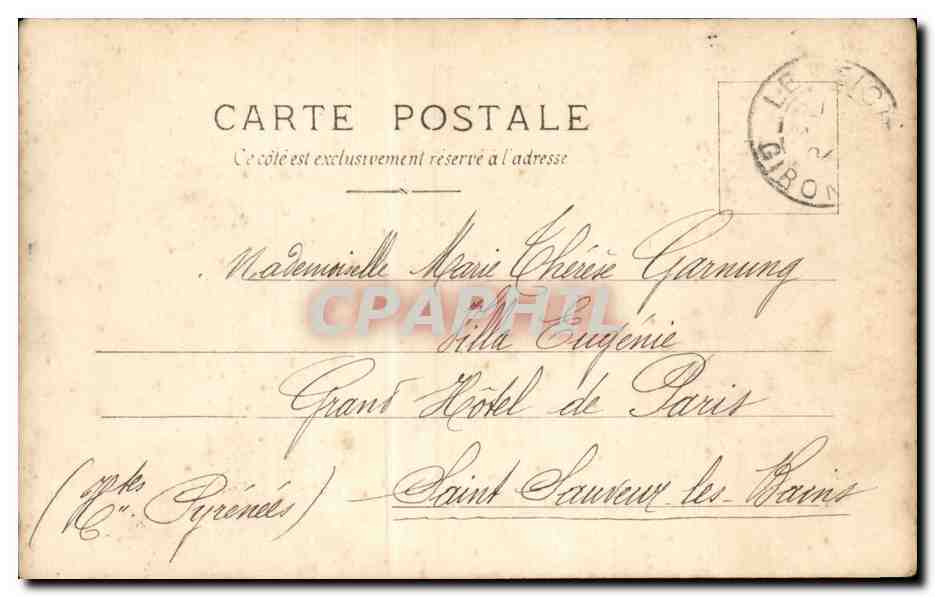 CARTE POSTALE
Ce côté est exclusivement réservé à l'adresse
LE
GIRON
Mademoiselle Marie Thérèse Garnung
Villa Eugénie
Grand Hôtel de Paris
Saint Sauveur les Bains
(Htes Pyrénées)
CPAPHIL